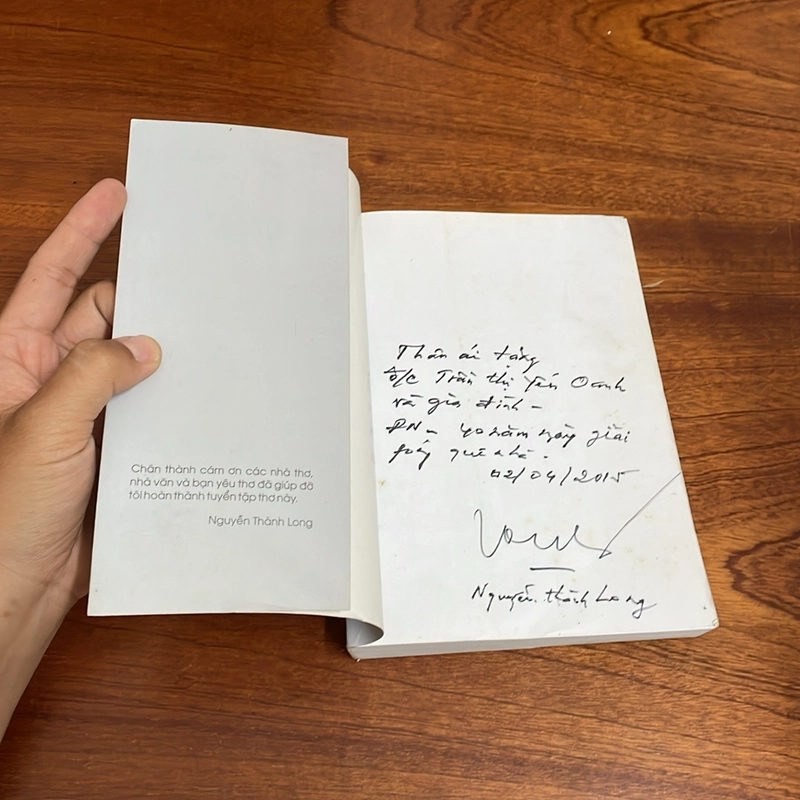 Chân thành cám ơn các nhà thơ,
nhà văn và bạn yêu thơ đã giúp đỡ
tôi hoàn thành tuyển tập thơ này.
Nguyễn Thành Long
Thân ái tặng
Đ/C Trần Thị Yến Oanh
và gia đình -
ĐN - 40 năm ngày giải
phóng quê nhà.
02/04/2015
Nguyễn Thành Long